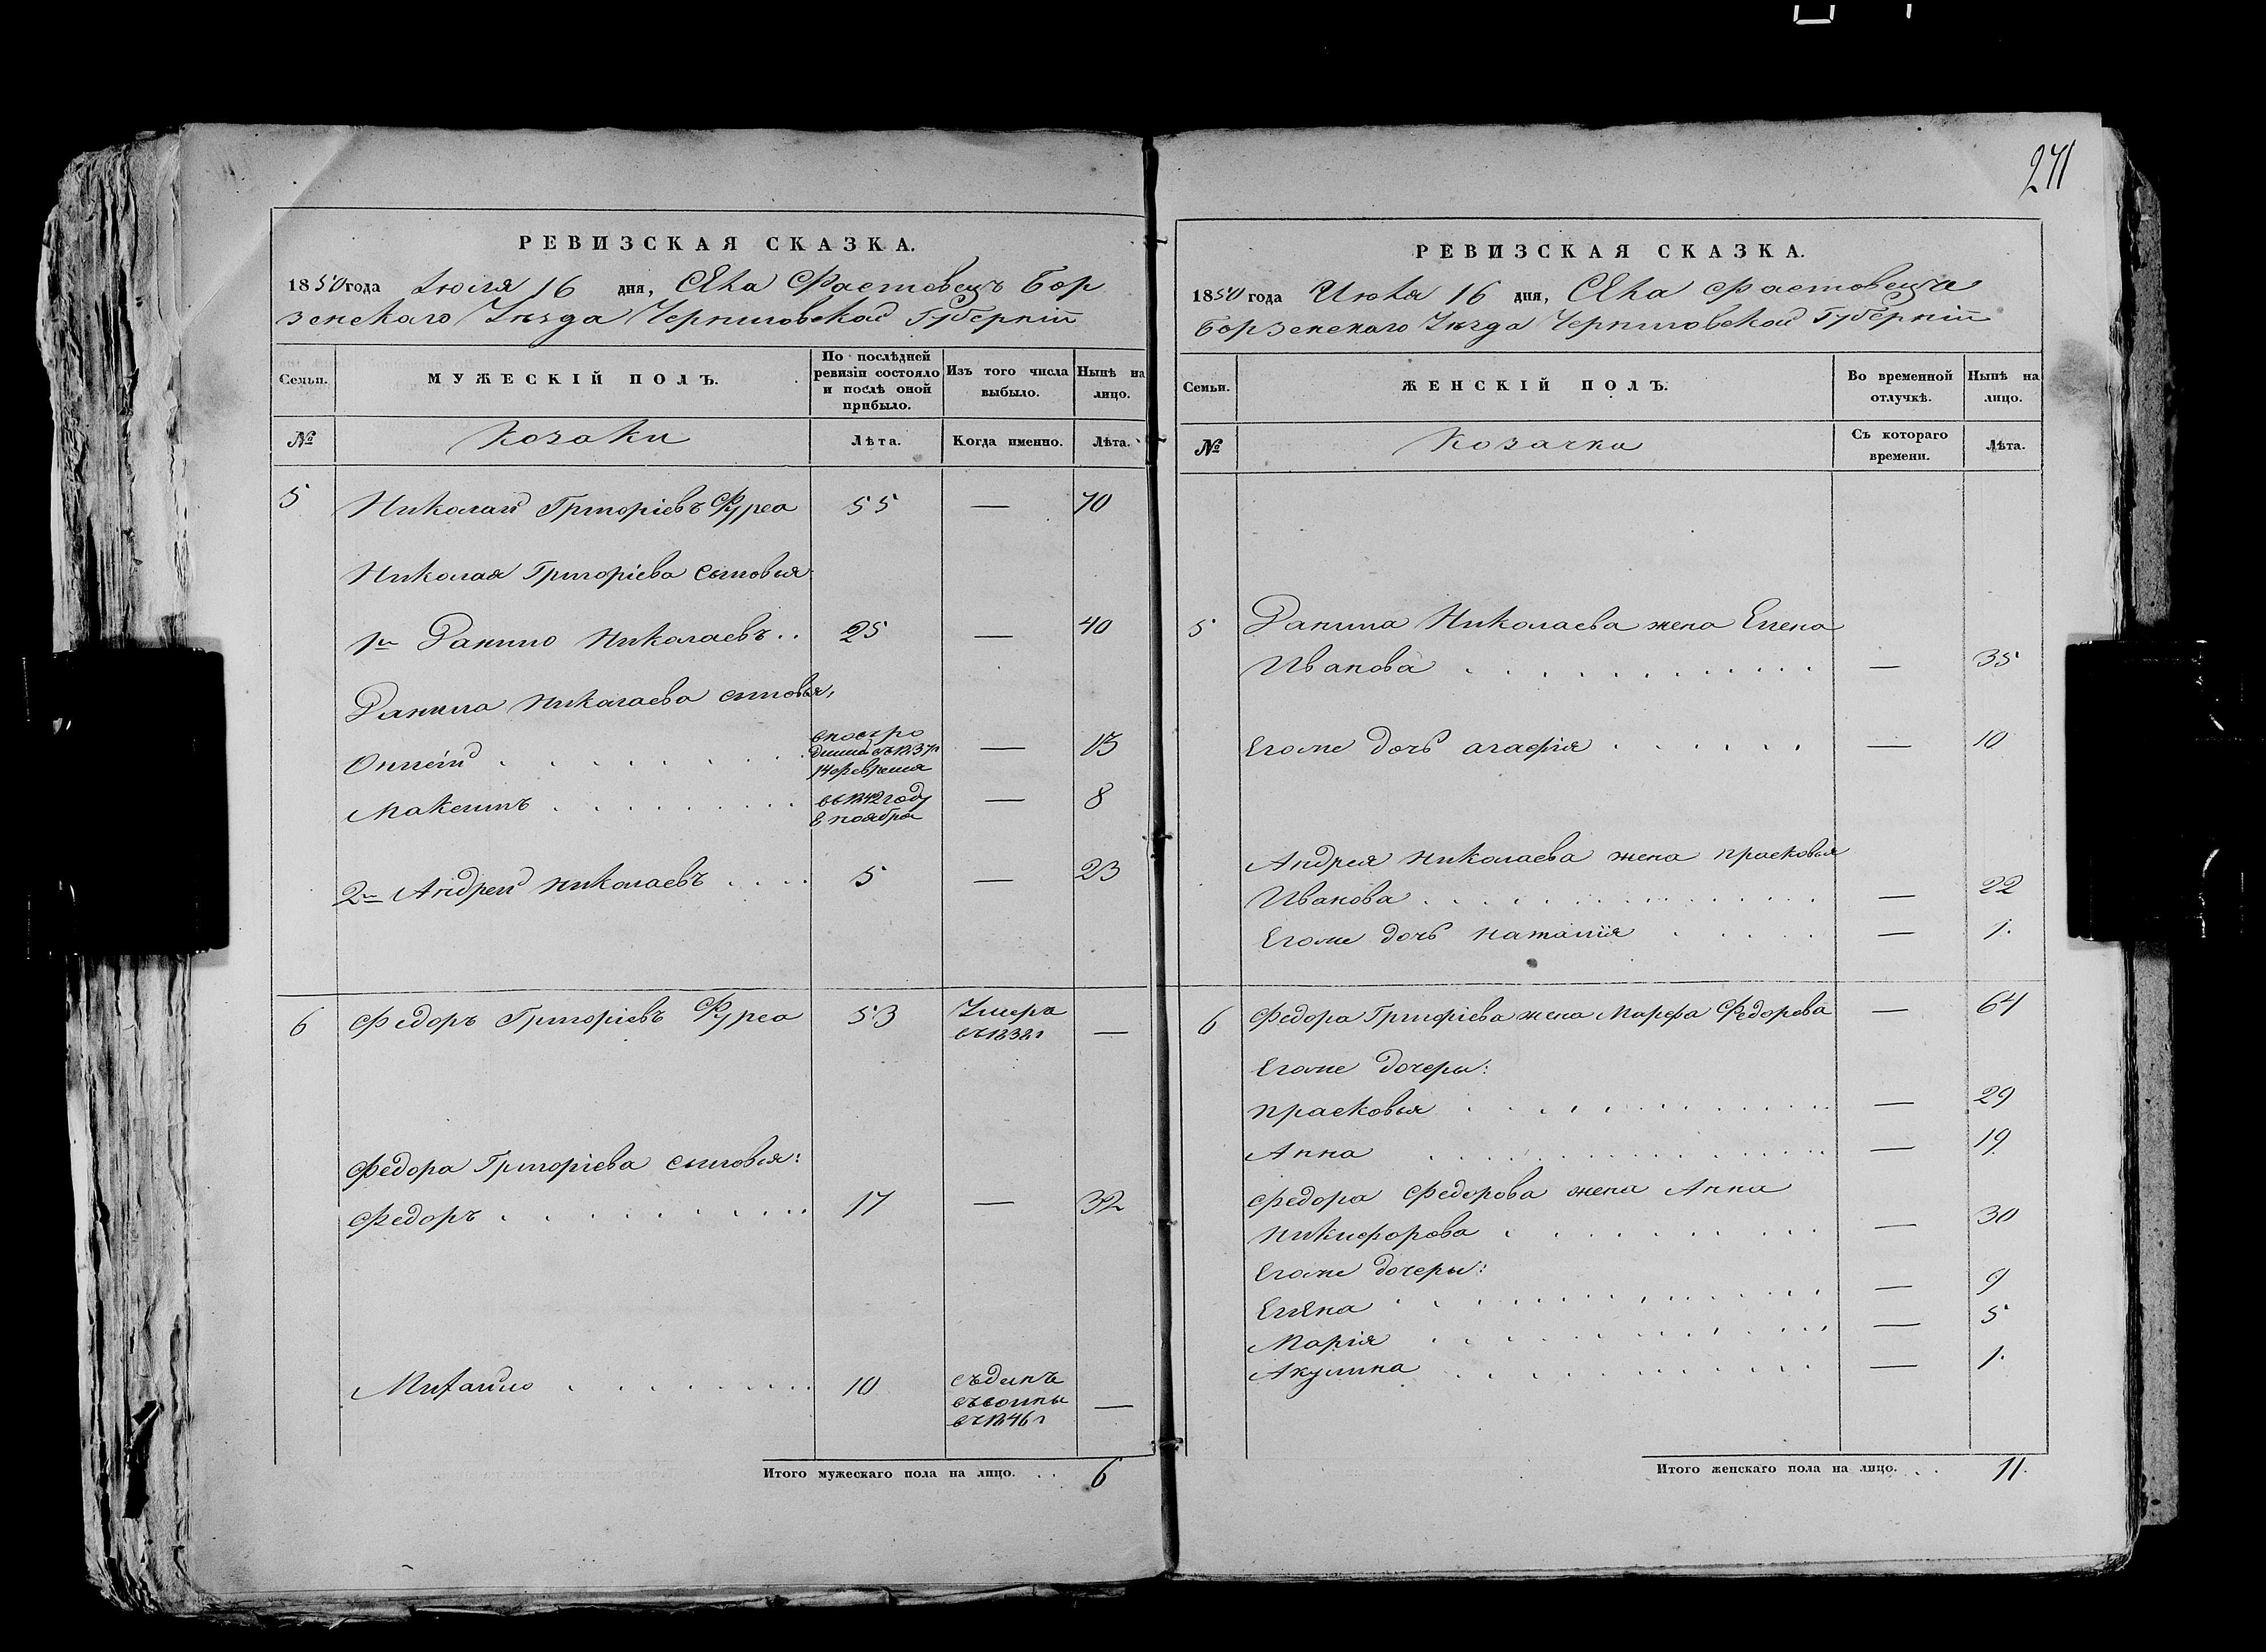 271
РЕВИЗСКАЯ СКАЗКА.
1850 года Июля 16 дня, Села Фастовецъ Бор
зенскаго Уѣзда Черниговской Губерніи
Семьи.
МУЖЕСКІЙ ПОЛЪ.
По послѣдней ревизіи состояло и послѣ оной прибыло.
Изъ того числа выбыло.
Нынѣ на лицо.
№
Козаки
Лѣта.
Когда именно.
Лѣта.
5 Николай Григоріевъ Фурса 55 — 70
Николая Григоріева сыновья
1й Данило Николаевъ . . 25 — 40
Данила Николаева сыновья,
Онисій — 13
14 февраля
Максимъ въ 1842 году — 8
8 ноября
2й Андрей Николаевъ 5 — 23
6 Федоръ Григоріевъ Фурса 53 Умеръ —
въ 1838 г
Федора Григоріева сыновья:
Федоръ 17 — 32
Михайло 10 —
въ 1846 г
Итого мужескаго пола на лицо. . . 6
РЕВИЗСКАЯ СКАЗКА.
1850 года Июля 16 дня, Села Фастовецъ
Борзенскаго Уѣзда Черниговской Губерніи
Семьи.
ЖЕНСКІЙ ПОЛЪ.
Во временной отлучкѣ.
Нынѣ на лицо.
№
Козачки
Съ котораго времени.
Лѣта.
5 Данила Николаева жена Елена
Иванова — 35
Егоже дочь агафія — 10
Андрея Николаева жена прасковья
Иванова — 22
Егоже дочь наталія — 1.
6 Федора Григоріева жена Марфа Федорова — 64
Егоже дочеры:
прасковья — 29
Анна — 19
Федора Федорова жена Анна
никифорова — 30
Егоже дочеры:
Елена — 9
Марія — 5
Акулина — 1.
Итого женскаго пола на лицо. . . 11.